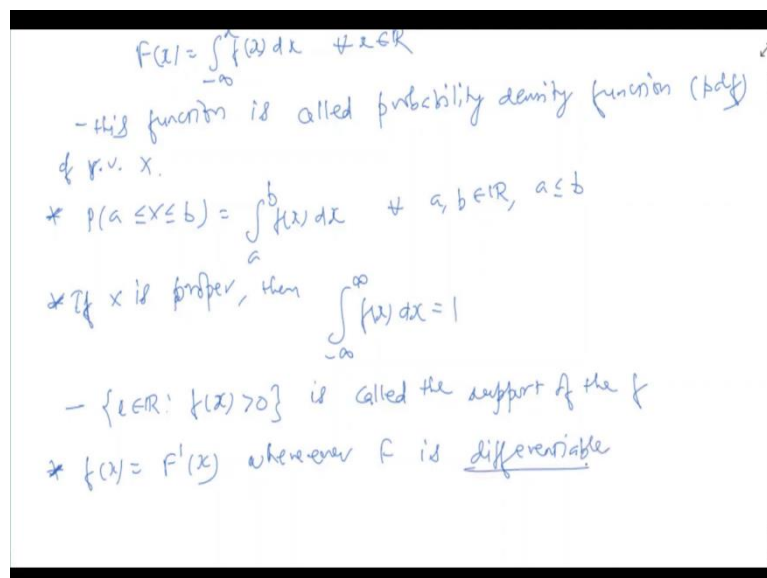 F(x) = ∫_{-∞}^{x} f(x) dx ∀ x ∈ ℝ
- this function is called probability density function (pdf)
of r.v. X.
* P(a ≤ X ≤ b) = ∫_{a}^{b} f(x) dx ∀ a, b ∈ ℝ, a ≤ b
* If X is proper, then ∫_{-∞}^{∞} f(x) dx = 1
- {x ∈ ℝ : f(x) > 0} is called the support of the f
* f(x) = F'(x) whereever F is differentiable